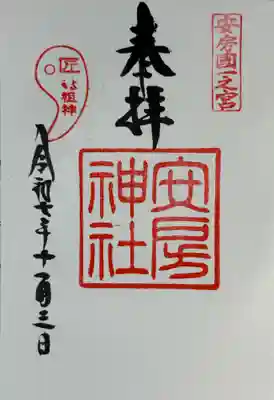 安房國一之宮
奉拝
安房
神社
匠
乃祖神
令和七年十一月三日